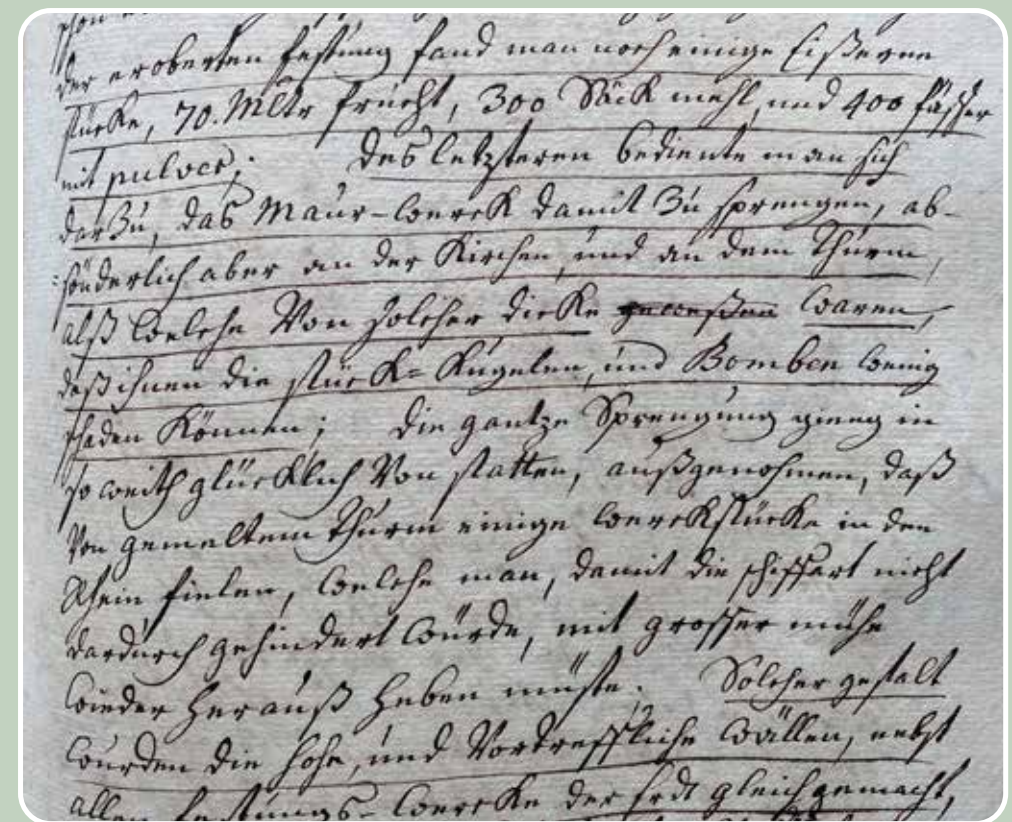 schon
der eroberten festung fand man noch einige Eißerne
stücke, 70. Mltr frücht, 300 Säck mehl, und 400 fässer
mit pulver; des letzteren bediente man sich
darzu, das Maur-werck damit zu sprengen, ab-
sönderlich aber an der Kirchen, und an dem Thurm,
alß welche Von solcher dicke geweßen waren,
daß ihnen die stück= Kugelen, und Bomben wenig
schaden Können; die gantze Sprengung gieng in
so weith glücklich Von statten, außgenohmen, daß
Von gemeltem Thurm einige werckstücke in den
Rhein fielen, welche man, damit die schiffart nicht
dardurch gehindert würde, mit grosser mühe
wieder herauß heben müste. Solcher gestalt
wurden die hohe, und Vortreffliche wällen, nebst
allen festungs-wercke der Erdt gleich gemacht,